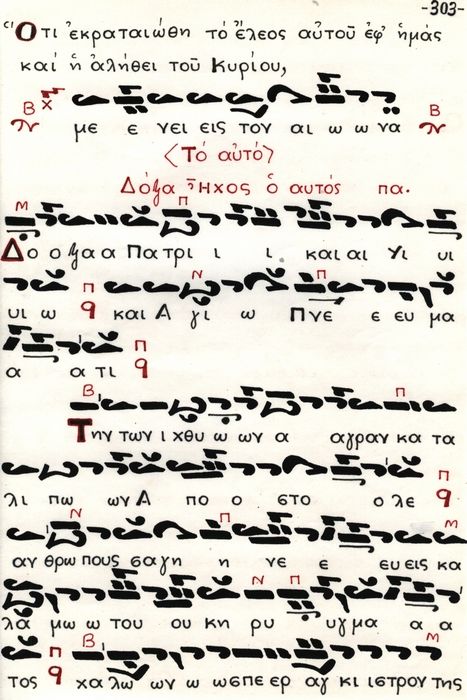 -303-
Ὅτι ἐκραταιώθη τό ἔλεος αὐτοῦ ἐφ' ἡμάς
καί ἡ ἀλήθει τοῦ Κυρίου,
Β με ε νει εις τον αι ω ω να Β
〈Τό αὐτό〉
Δόξα Ἦχος ὁ αυτός πα.
Μ Π
Δο ο ξα α Πα τρι ι ι και αι Υι υι
Ν Π
υι ω Π q και Α γι ω Πνε ε ευ μα
α α τι Π q
Β Π
Την των ι χθυ ω ων α αγραν κα τα
λι πω ων Α πο ο στο ο λε Π q
Ν Π Μ
αν θρω πους σα γη η νε ε ευ εις κα
Ν Π
λα μω ω του ου κη ρυ υγμα α α
Β Μ
τος Π q χα λω ων ω ωσπε ερ αγ κι ιστρον της